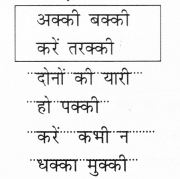 अक्की बक्की
करें तरक्की
दोनों की यारी
हो पक्की
करें कभी न
धक्का मुक्की